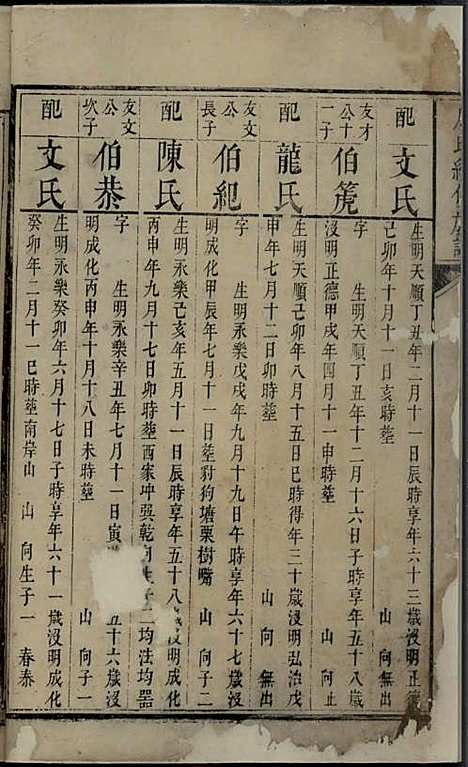 配
文氏
生明天順丁丑年二月十一日辰時享年六十三歲沒明正德
己卯年十月十一日亥時塟 山 向無出
友才
公十
一子
伯箎
字 生明天順丁丑年十二月十六日子時享年五十八歲
沒明正德甲戌年四月十一申時塟 山 向止
配
龍氏
生明天順己卯年八月十五日巳時得年三十歲沒明弘治戊
申年七月十二日卯時塟 山 向無出
友文
公
長子
伯紀
字 生明永樂戊戌年九月十九日午時享年六十七歲沒
明成化甲辰年七月十一日塟豺狗塘栗樹嘴 山 向子二
配
陳氏
生明永樂己亥年五月十一日辰時享年五十八 沒明成化
丙申年九月十七日卯時塟西家冲巽乾向 二均法均器
友文
公
次子
伯恭
字 生明永樂辛丑年七月十一日寅 五十六歲沒
明成化丙申年十月十八日未時塟 山 向子一
配
文氏
生明永樂癸卯年六月十七日子時享年六十一歲沒明成化
癸卯年二月十一巳時塟南岸山 山 向生子一 春泰
氏